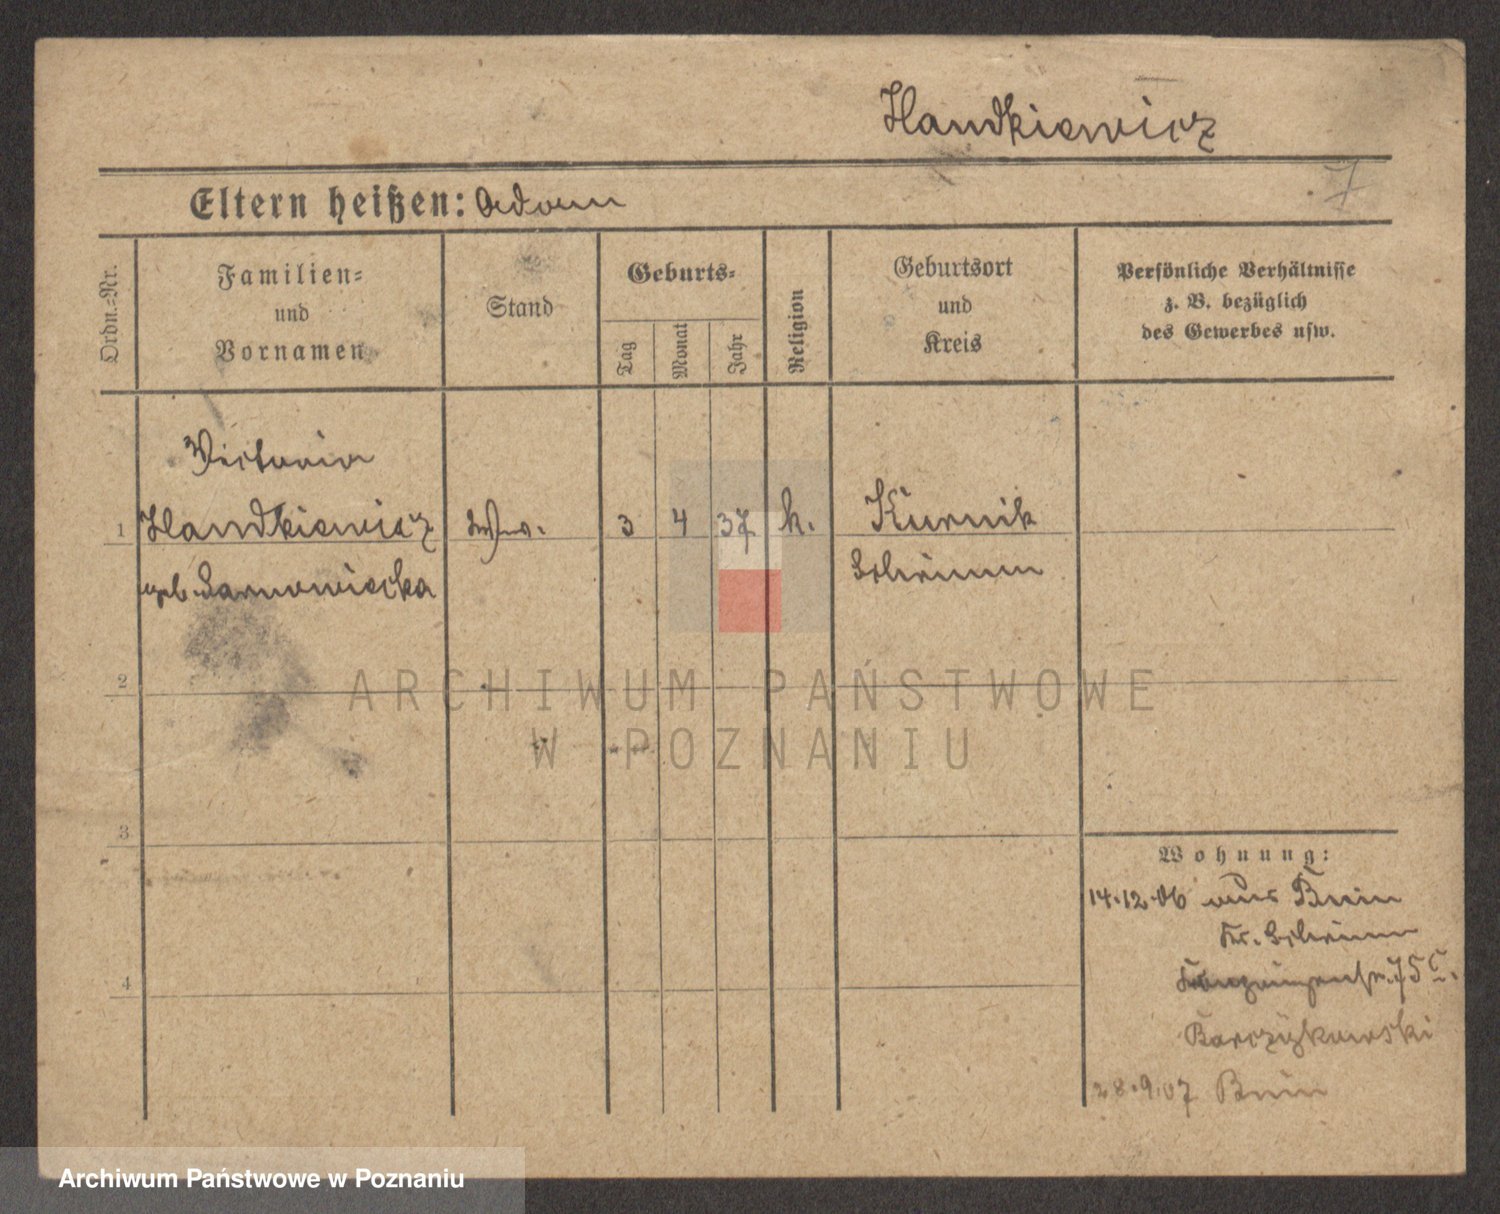 Handkiewicz
7
Eltern heißen: Adam
Ordn.-Nr.
Familien-
und
Vornamen
Stand
Geburts-
Tag
Monat
Jahr
Religion
Geburtsort
und
Kreis
Persönliche Verhältnisse
z. B. bezüglich
des Gewerbes usw.
Victoria
1 Handkiewicz 3 4 37 k. Kurnik
geb. Sarnowiecka Schrimm
2
3
4
Wohnung:
14.12.06 aus Bnin
Kr. Schrimm
75 c.
Barczykowski
28.9.07 Bnin
ARCHIWUM PAŃSTWOWE
W POZNANIU
Archiwum Państwowe w Poznaniu